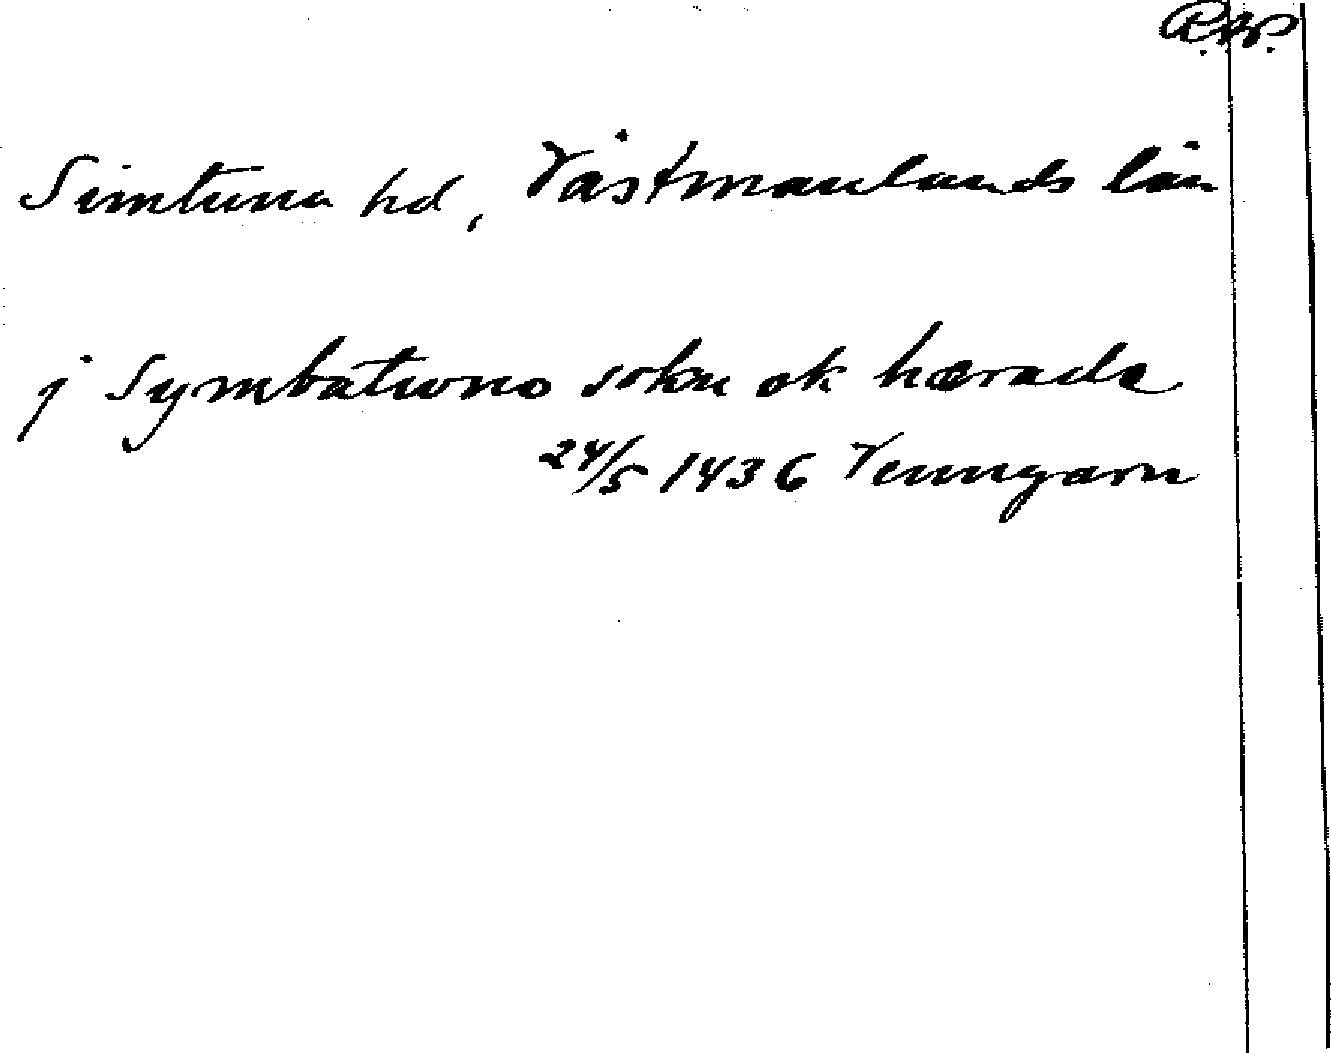 Simtuna hd, Västmanlands län
j Symbatwno sokn ok hærade
24/5 1436 Venngarn